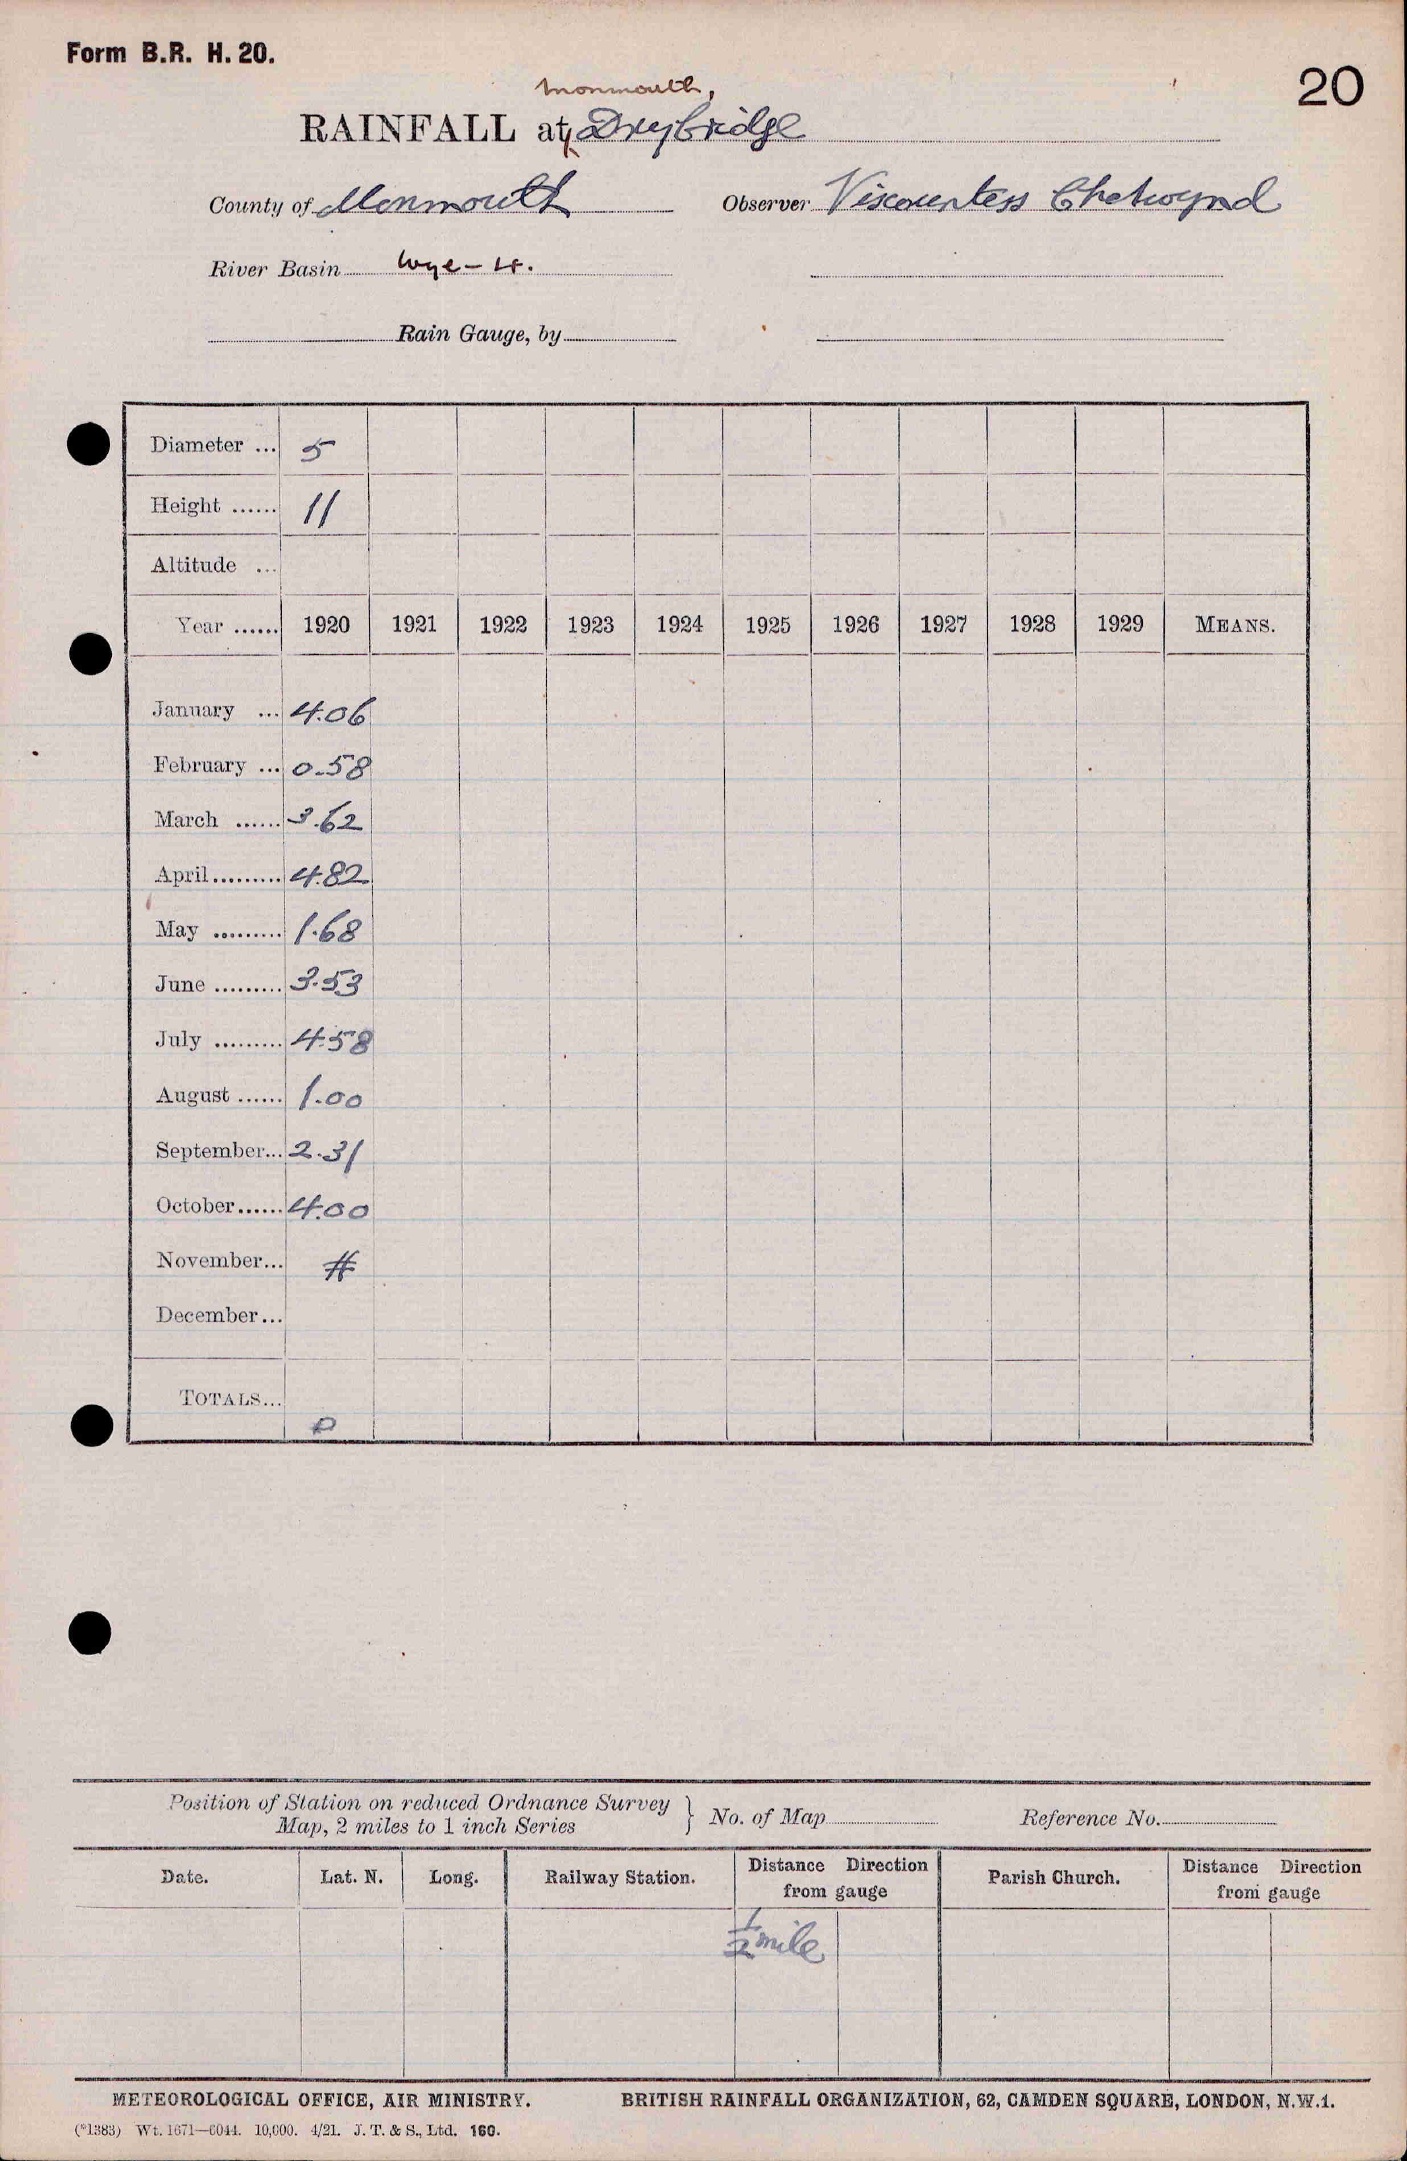 Form B.R. H. 20.
20
Monmouth,
RAINFALL at Drybridge
County of Monmouth Observer Viscountess Chetwynd
River Basin Wye - 4.
Rain Gauge, by
Diameter ... 5
Height ...... 11
Altitude ...
Year ...... 1920 1921 1922 1923 1924 1925 1926 1927 1928 1929 MEANS.
January ... 4.06
February ... 0.58
March ...... 3.62
April ......... 4.82
May ......... 1.68
June ......... 3.53
July ......... 4.58
August ...... 1.00
September... 2.31
October...... 4.00
November... #
December...
TOTALS...
P
Position of Station on reduced Ordnance Survey
Map, 2 miles to 1 inch Series } No. of Map Reference No.
Date. Lat. N. Long. Railway Station. Distance Direction from gauge Parish Church. Distance Direction from gauge
1/2 mile
METEOROLOGICAL OFFICE, AIR MINISTRY. BRITISH RAINFALL ORGANIZATION, 62, CAMDEN SQUARE, LONDON, N.W.1.
(*1383) Wt. 1671—6044. 10,000. 4/21. J. T. & S., Ltd. 160.